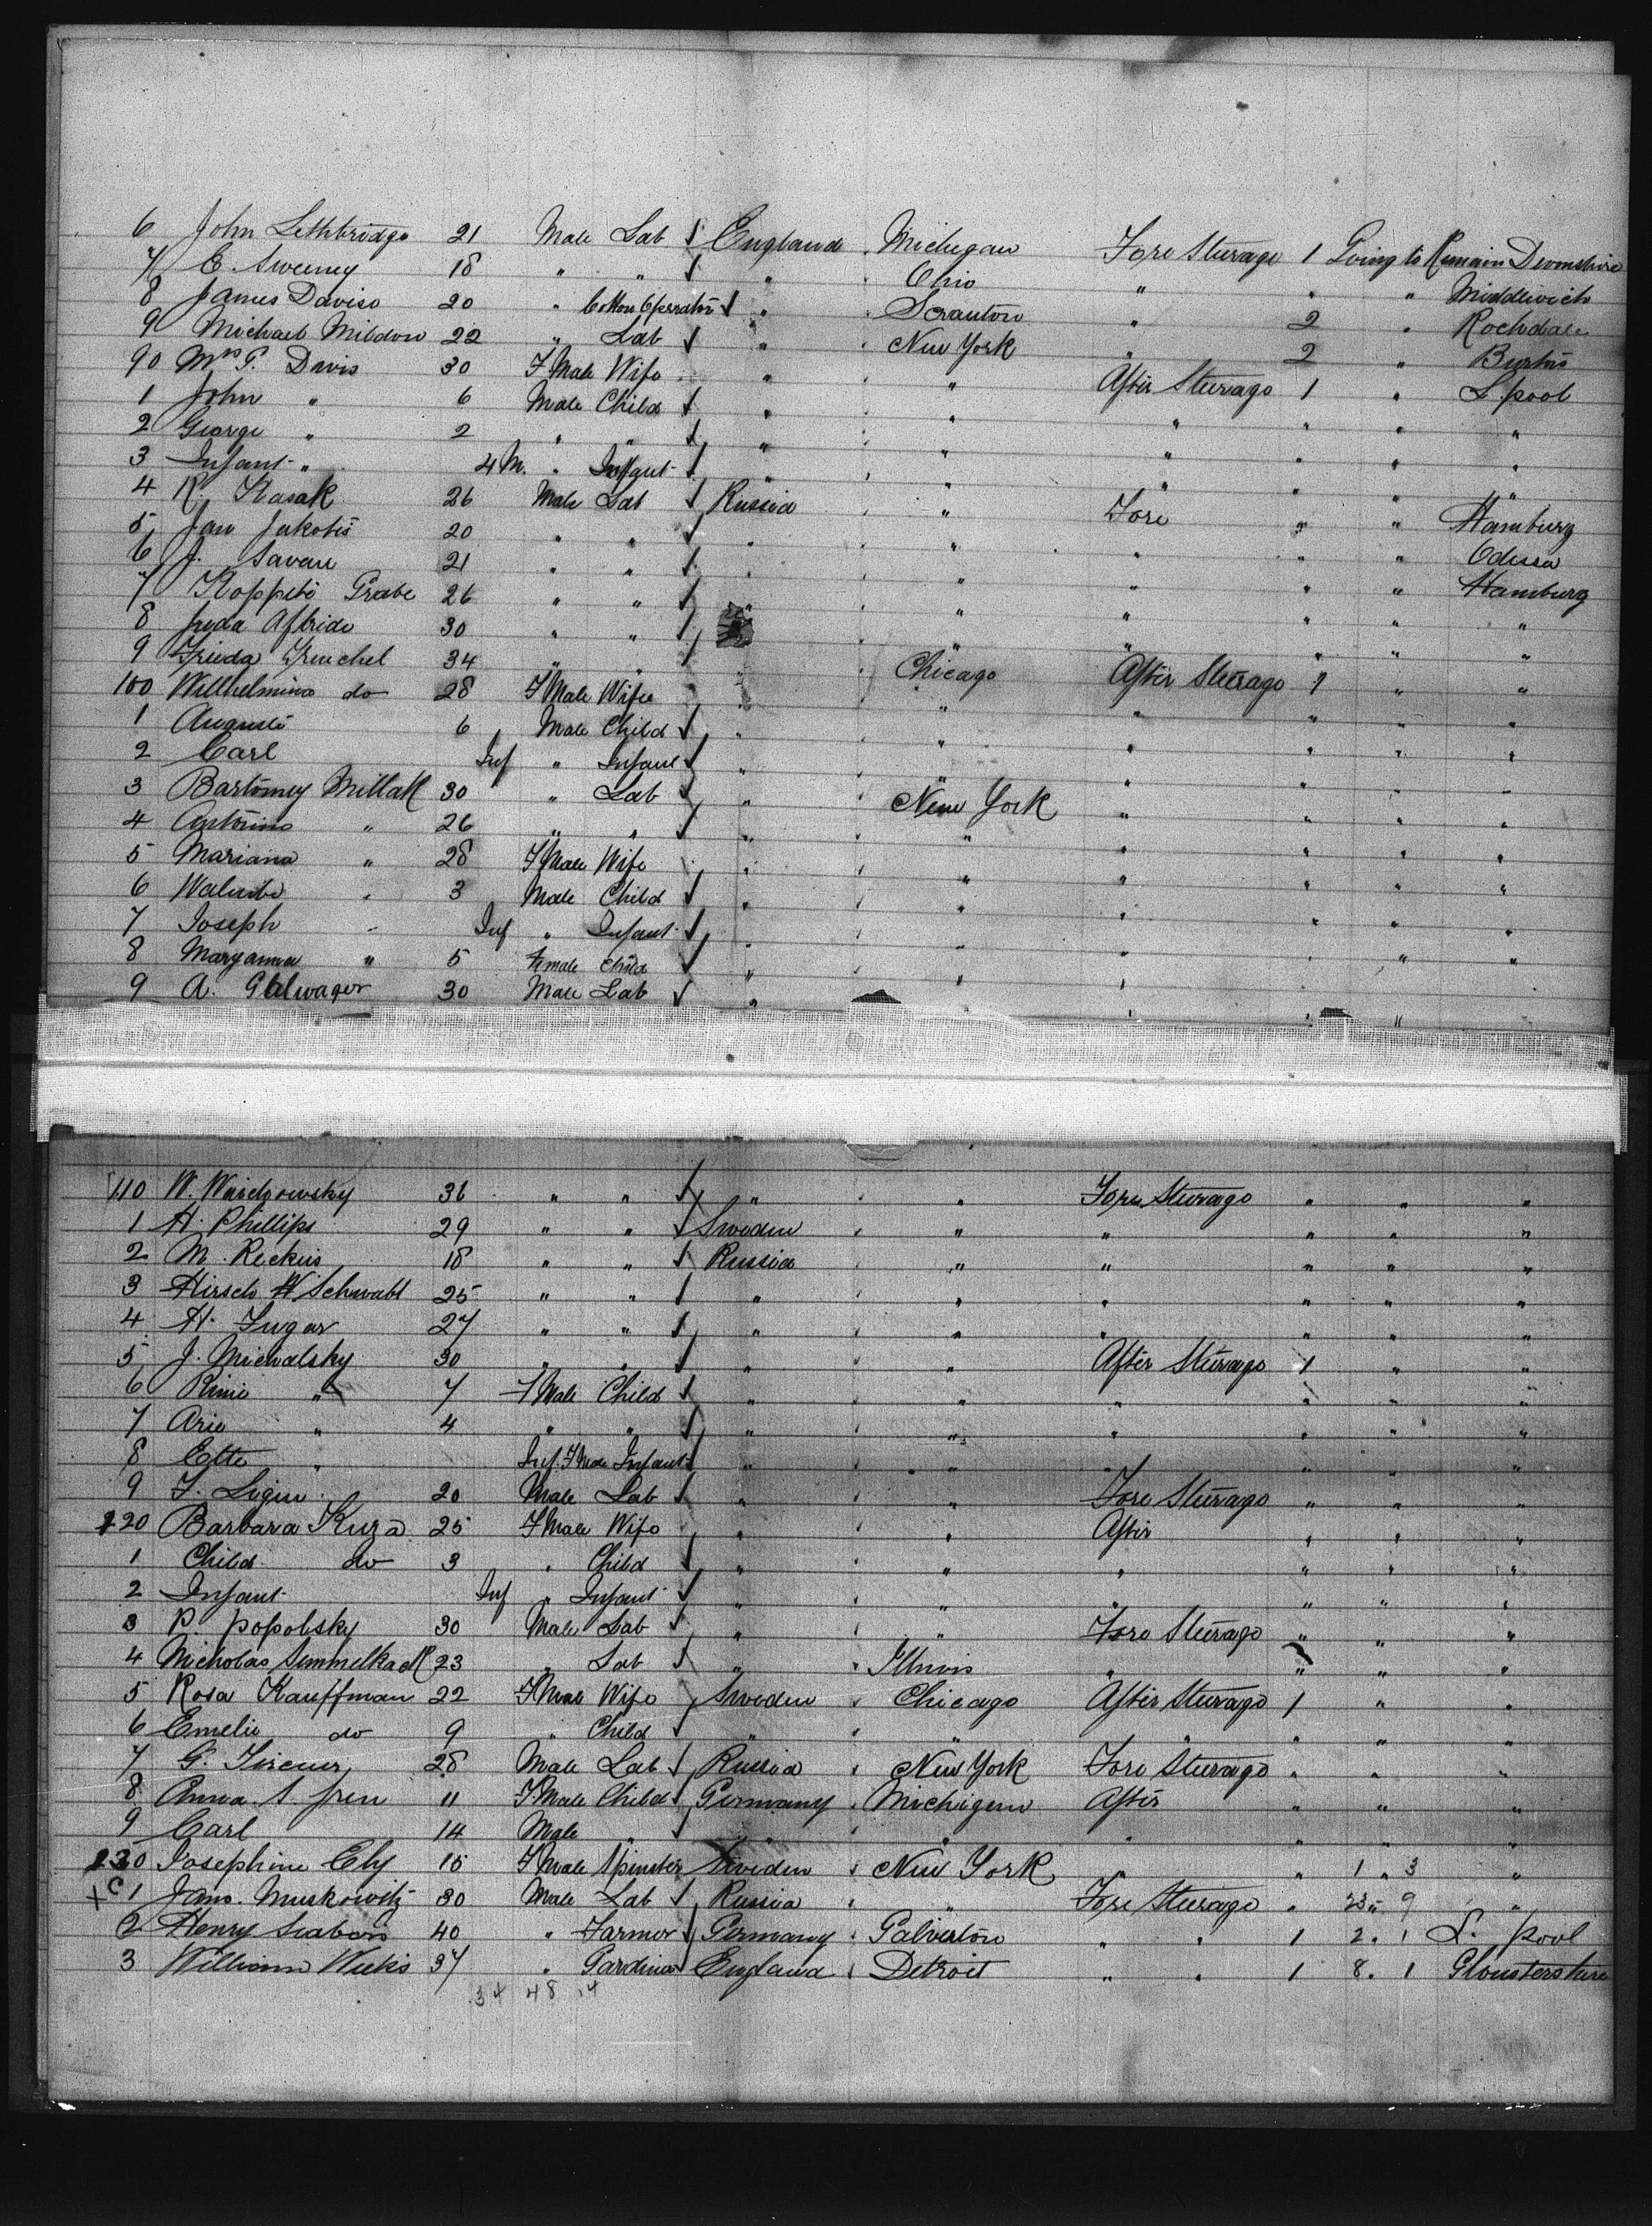 6 John Lethbridge 21 Male Lab England Michigan Fore Steerage 1 Going to Remain Devonshire
7 E. Sweeney 18 " " " Ohio " " " Middlewich
8 James Daviso 20 " Cotton Operator " Scranton " 2 " Rochdale
9 Michael Mildon 22 " Lab " New York " 2 " Burton
90 Mrs P. Davis 30 F Male Wife " " After Steerage 1 " L. pool
1 John " 6 Male Child " " " " " "
2 George " 2 " " " " " " " "
3 Infant " 4 M. " Infant " " " " " "
4 R. Kasak 26 Male Lab Russia " Fore " " Hamburg
5 Jan 20 " " " " " " " Odessa
6 J. Savan 21 " " " " " " " Hamburg
7 Grabe 26 " " " " " " " "
8 30 " " " " " " " "
9 Frieda 34 " " " Chicago After Steerage 1 " "
100 Willhelmina do 28 F Male Wife " " " " " "
1 Auguste 6 Male Child " " " " " "
2 Carl Inf " Infant " " " " " "
3 Bartomey Millak 30 " Lab " New York " " " "
4 Antonino " 26 " " " " " " " "
5 Mariana " 28 F Male Wife " " " " " "
6 " 3 Male Child " " " " " "
7 Joseph " Inf " Infant " " " " " "
8 Maryanna " 5 Female Child " "
9 A. 30 Male Lab " " " " "
110 W. 36 " " " " Fore Steerage " " "
1 H. Phillips 29 " " Sweden " " " " "
2 M. Reckus 18 " " Russia " " " " "
3 Hirsch W Schwabl 25 " " " " " " " "
4 H. 27 " " " " " " " "
5 J. Miewalsky 30 " " " " After Steerage 1 " "
6 Rinie " 7 F Male Child " " " " " "
7 Arie " 4 " " " " " " " "
8 Ette " Inf. F Male Infant " " " " " "
9 F. Ligin 20 Male Lab " " Fore Steerage " " "
120 Barbara Kuza 25 F Male Wife " " After " " "
1 Child do 3 " Child " " " " " "
2 Infant Inf " Infant " " " " " "
3 P. Popolsky 30 Male Lab " " Fore Steerage " " "
4 Nicholas Semmelkack 23 " Lab " Illinois " " " "
5 Rosa Kauffman 22 F Male Wife Sweden Chicago After Steerage 1 " "
6 Emelie do 9 " Child " " " " " "
7 G. 28 Male Lab Russia New York Fore Steerage " " "
8 Anna 11 F. Male Child Germany Michigan After " " "
9 Carl 14 Male " " " " " " "
130 Josephine Ely 15 F Male Spinster Sweden New York " " 1 " 3 "
X C 1 Jans. Muskowitz 30 Male Lab Russia " Fore Steerage " 23 " 9 "
2 Henry 40 " Farmer Germany Galveston " " 1 2 " 1 L. pool
3 William Weeks 37 " Gardiner England Detroit " " 1 8. 1 Gloustershire
34 48 14